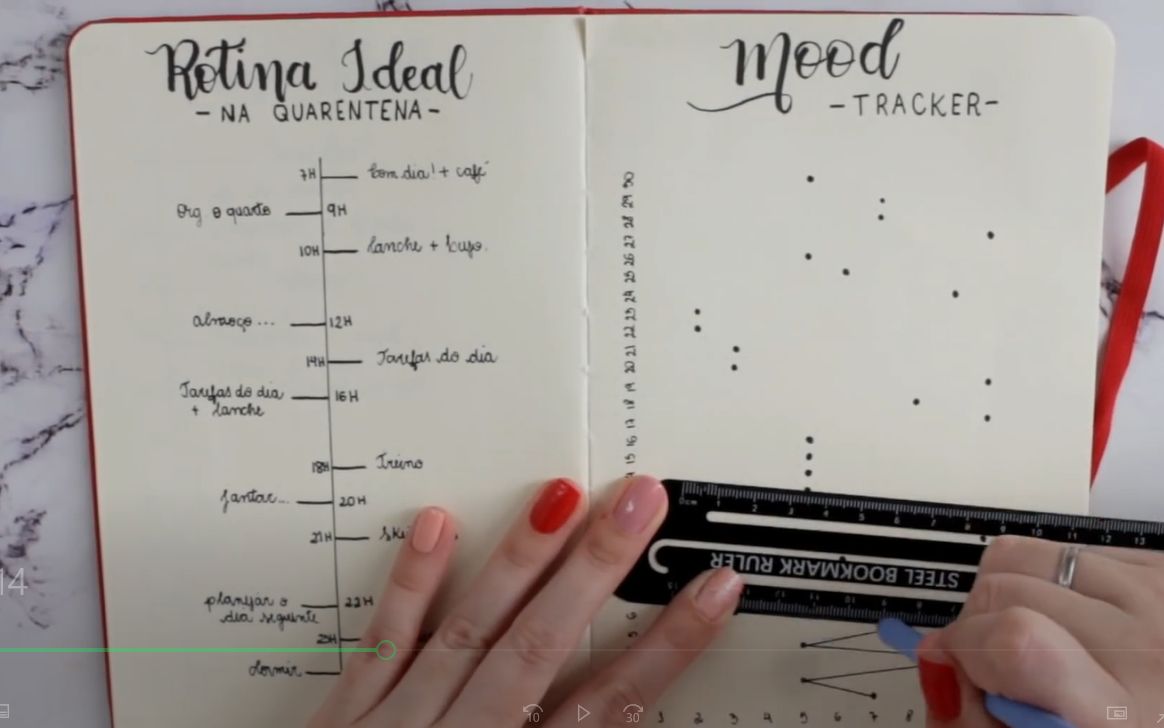 Rotina Ideal
- NA QUARENTENA -
7H bom dia! + café
Org o quarto 9H
10H lanche +
almoço... 12H
14H Tarefas do dia
Tarefas do dia 16H
+ lanche
18H Treino
jantar... 20H
21H
planejar o 22H
dia seguinte
23H
dormir
Mood
- TRACKER -
30
29
28
27
26
25
24
23
22
21
20
19
18
17
16
15
0cm 1 2 3 4 5 6 7 8 9 10 11 12 13
STEEL BOOKMARK RULER
6
5
1 2 3 4 5 6 7 8
14
10
30